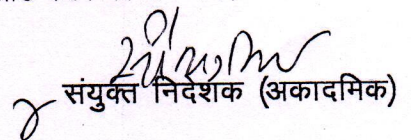 संयुक्त निदेशक (अकादमिक)